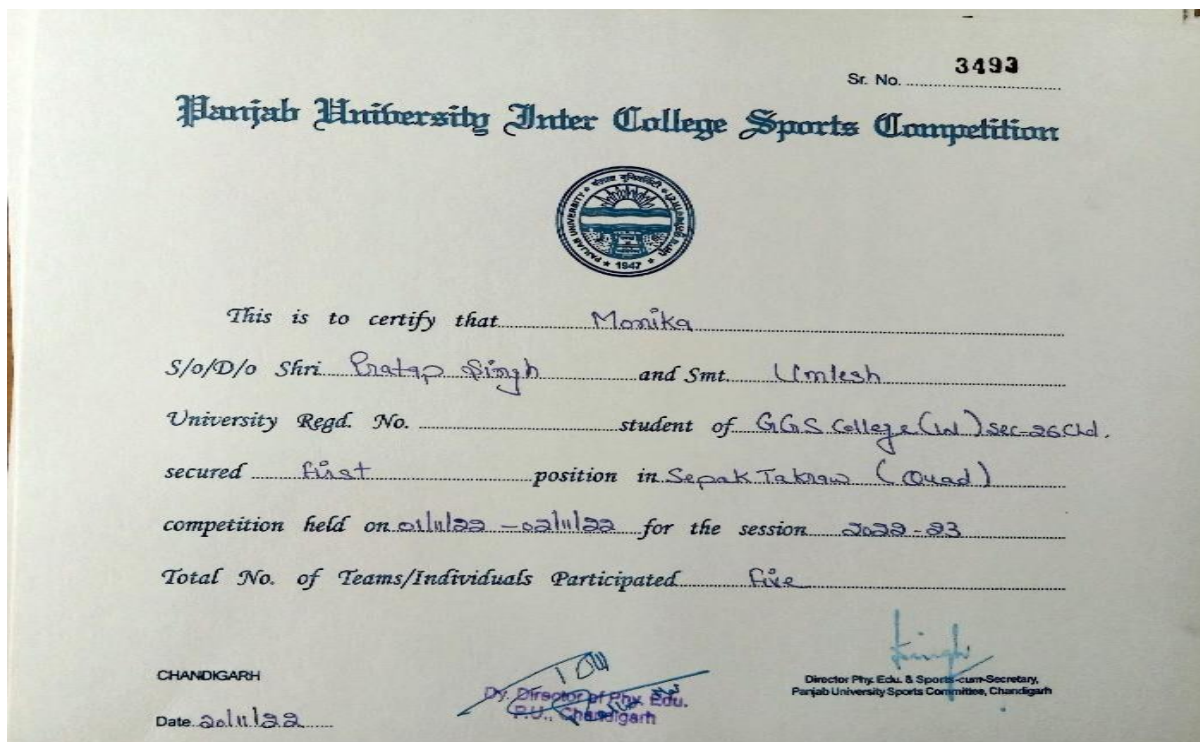 Sr. No. 3493
Panjab University Inter College Sports Competition
PANJAB UNIVERSITY
* 1947 *
This is to certify that Monika
S/o/D/o Shri Pratap Singh and Smt. Umlesh
University Regd. No. student of GGS College (W) Sec-26 Chd.
secured first position in Sepak Takraw (Quad)
competition held on 01/11/22 - 02/11/22 for the session 2022-23
Total No. of Teams/Individuals Participated five
CHANDIGARH
Date 20/11/22
Dy. Director of Phy. Edu.
P.U., Chandigarh
Director Phy. Edu. & Sports-cum-Secretary,
Panjab University Sports Committee, Chandigarh